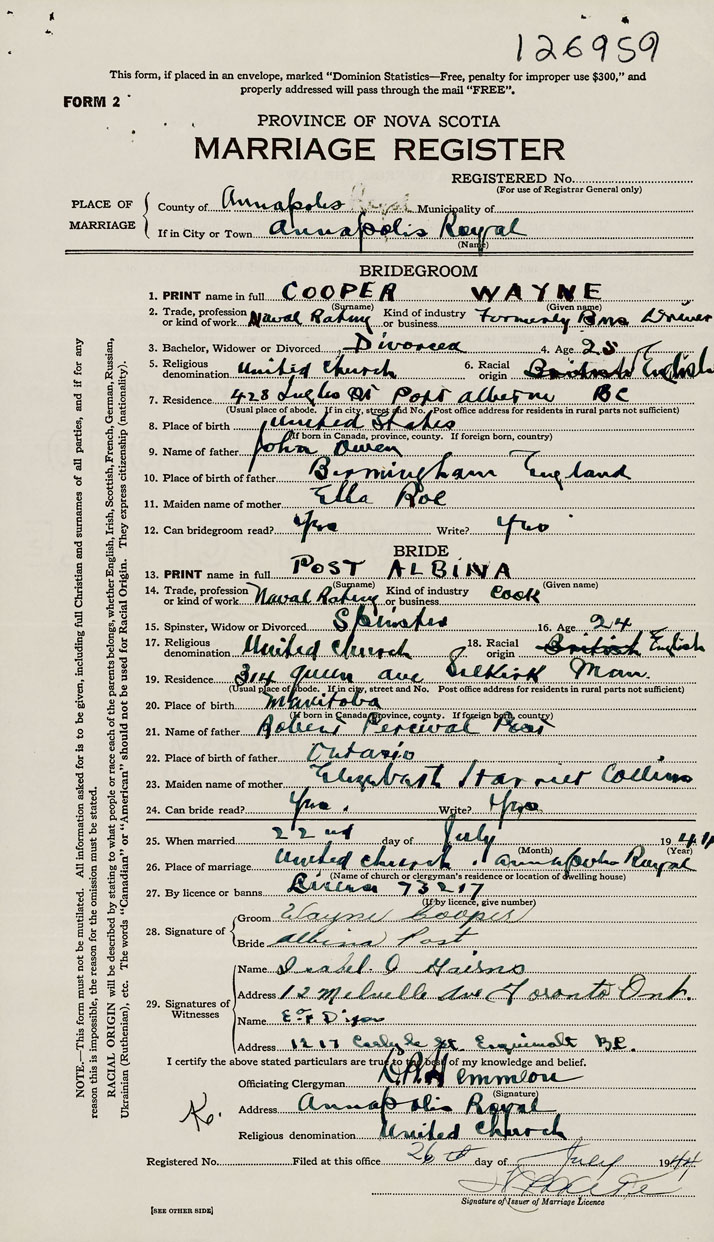 126959
This form, if placed in an envelope, marked "Dominion Statistics—Free, penalty for improper use $300," and
properly addressed will pass through the mail "FREE".
FORM 2
PROVINCE OF NOVA SCOTIA
MARRIAGE REGISTER
REGISTERED No.
(For use of Registrar General only)
PLACE OF MARRIAGE
County of Annapolis Municipality of
If in City or Town Annapolis Royal
(Name)
BRIDEGROOM
1. PRINT name in full COOPER WAYNE
(Surname) (Given name)
2. Trade, profession or kind of work Naval Rating Kind of industry or business Formerly Bus Driver
3. Bachelor, Widower or Divorced Divorced 4. Age 25
5. Religious denomination United Church 6. Racial origin British English
7. Residence 428 St Port Alberni BC
(Usual place of abode. If in city, street and No. Post office address for residents in rural parts not sufficient)
8. Place of birth United States
(If born in Canada, province, county. If foreign born, country)
9. Name of father John Owen
10. Place of birth of father Birmingham England
11. Maiden name of mother Ella Roe
12. Can bridegroom read? Yes Write? Yes
BRIDE
13. PRINT name in full POST ALBINA
(Surname) (Given name)
14. Trade, profession or kind of work Naval Rating Kind of industry or business Cook
15. Spinster, Widow or Divorced Spinster 16. Age 24
17. Religious denomination United Church 18. Racial origin British English
19. Residence 314 Queen Ave Selkirk Man.
(Usual place of abode. If in city, street and No. Post office address for residents in rural parts not sufficient)
20. Place of birth Manitoba
(If born in Canada, province, county. If foreign born, country)
21. Name of father Robert Percival Post
22. Place of birth of father Ontario
23. Maiden name of mother Elizabeth Harriet Collins
24. Can bride read? Yes. Write? Yes
25. When married 22nd day of July 1944
(Month) (Year)
26. Place of marriage United Church, Annapolis Royal
(Name of church or clergyman's residence or location of dwelling house)
27. By licence or banns License 73217
(If by licence, give number)
28. Signature of
Groom Wayne Cooper
Bride Albina Post
29. Signatures of Witnesses
Name Isabel
Address 12 Melville Ave Toronto Ont.
Name
Address 1217 Carlyle St. Esquimalt B.C.
I certify the above stated particulars are true to the best of my knowledge and belief.
Officiating Clergyman Hemmeon
(Signature)
Address Annapolis Royal
Religious denomination United Church
Registered No. Filed at this office 26th day of July 1944
Signature of Issuer of Marriage Licence
[SEE OTHER SIDE]
NOTE.—This form must not be mutilated. All information asked for is to be given, including full Christian and surnames of all parties, and if for any
reason this is impossible, the reason for the omission must be stated.
RACIAL ORIGIN will be described by stating to what people or race each of the parents belongs, whether English, Irish, Scottish, French, German, Russian,
Ukrainian (Ruthenian), etc. The words "Canadian" or "American" should not be used for Racial Origin. They express citizenship (nationality).